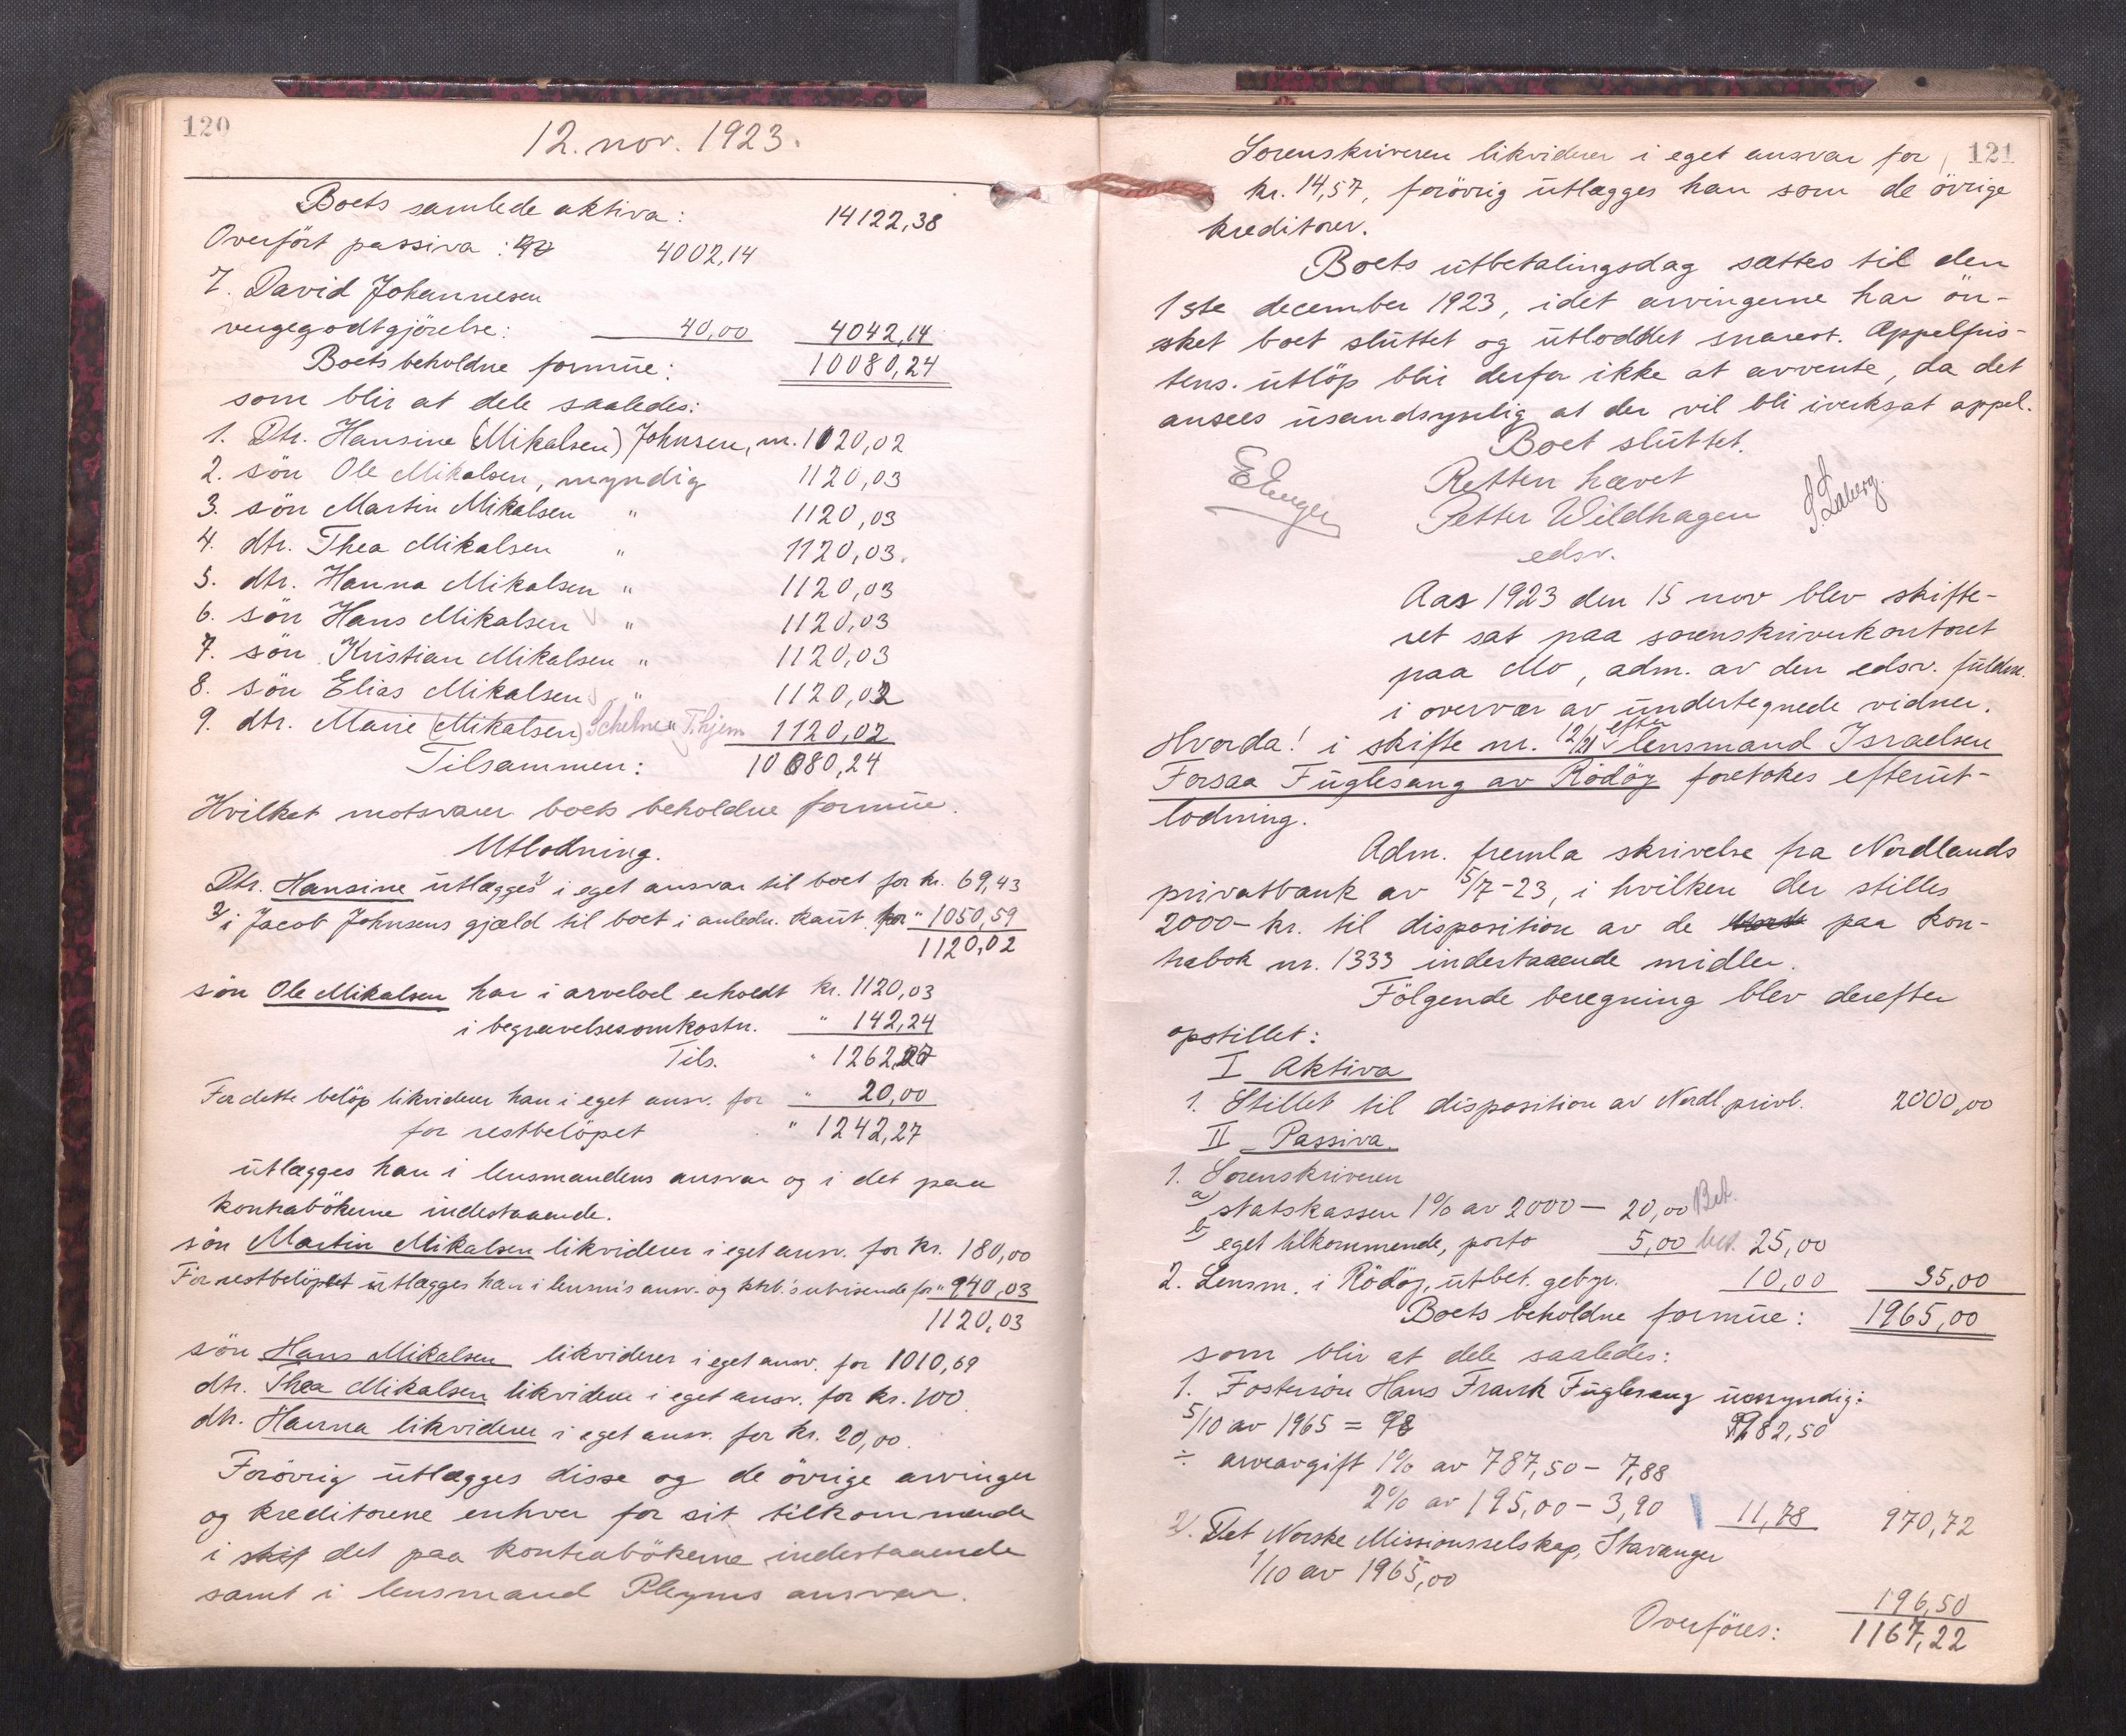 120
12. nov. 1923.
Boets samlede aktiva: 14122,38
Overført passiva: 4002,14
7. David Johannesen
vergegodtgjörelse: 40,00 4042,14
Boets beholdne formue: 10080,24
som blir at dele saaledes:
1. Dtr. Hansine (Mikalsen) Johnsen, m. 1120,02
2. sön Ole Mikalsen, myndig 1120,03
3. sön Martin Mikalsen " 1120,03
4. dtr. Thea Mikalsen " 1120,03.
5. dtr. Hanna Mikalsen " 1120,03
6. sön Hans Mikalsen " 1120,03
7. sön Kristian Mikalsen " 1120,03
8. sön Elias Mikalsen " 1120,02
9. dtr. Marie (Mikalsen) " 1120,02
Tilsammen: 10080,24
Hvilket motsvarer boets beholdne formue.
Utlodning.
Dtr. Hansine utlægges i eget ansvar til boet for kr. 69,43
i Jacob Johnsens gjæld til boet i anledn. kaut. for " 1050,59
1120,02
sön Ole Mikalsen har i arvelod erholdt kr. 1120,03
i begravelsesomkostn. " 142,24
Tils. " 1262,27
For dette belöp likviderer han i eget ansv. for " 20,00
for restbelöpet " 1242,27
utlægges han i lensmandens ansvar og i det paa
kontrabökerne indestaaende.
sön Martin Mikalsen likviderer i eget ansv. for kr. 180,00
For restbelöpet utlægges han i lensm's ansv. og ktrb.'s utvisende for " 940,03
1120,03
sön Hans Mikalsen likviderer i eget ansv. for 1010,69
dtr. Thea Mikalsen likviderer i eget ansv. for kr. 100
dtr. Hanna likviderer i eget ansv. for kr. 20,00.
Forövrig utlægges disse og de övrige arvinger
og kreditorene enhver for sit tilkommende
i skif det paa kontrabökerne indestaaende
samt i lensmand Pleyms ansvar.
121
Sorenskriveren likviderer i eget ansvar for
kr. 14,57, forövrig utlægges han som de övrige
kreditorer.
Boets utbetalingsdag sættes til den
1ste december 1923, idet arvingerne har ön-
sket boet sluttet og utloddet snarest. Appelfris-
tens utlöp blir derfor ikke at avvente, da det
ansees usandsynlig at der vil bli iverksat appel.
Boet sluttet.
Retten hævet
Petter Wildhagen
edsv.
Aar 1923 den 15 nov blev skifte-
ret sat paa sorenskriverkontoret
paa Mo, adm. av den edsv. fuldm.
i overvær av undertegnede vidner.
Hvorda! i skifte nr. 12/21 efter lensmand Israelsen
Forsaa Fuglesang av Rödöy foretokes efterut-
lodning.
Adm. fremla skrivelse fra Nordlands
privatbank av 5/7-23, i hvilken der stilles
2000- kr. til disposition av de paa kon-
trabok nr. 1333 indestaaende midler.
Fölgende beregning blev derefter
opstillet:
I Aktiva
1. Stillet til disposition av Nordl. privb. 2000,00
II Passiva.
1. Sorenskriveren
a) statskassen 1% av 2000 - 20,00 Bet.
b) eget tilkommende, porto 5,00 bet. 25,00
2. Lensm. i Rödöy, utbet. gebyr. 10,00 35,00
Boets beholdne formue: 1965,00
som blir at dele saaledes:
1. Fostersön Hans Frank Fuglesang umyndig:
5/10 av 1965 = 982,50
÷ arveavgift 1% av 787,50 - 7,88
2% av 195,00 - 3,90 11,78 970,72
2. Det Norske Missionsselskap, Stavanger
1/10 av 1965,00
196,50
Overföres: 1167,22